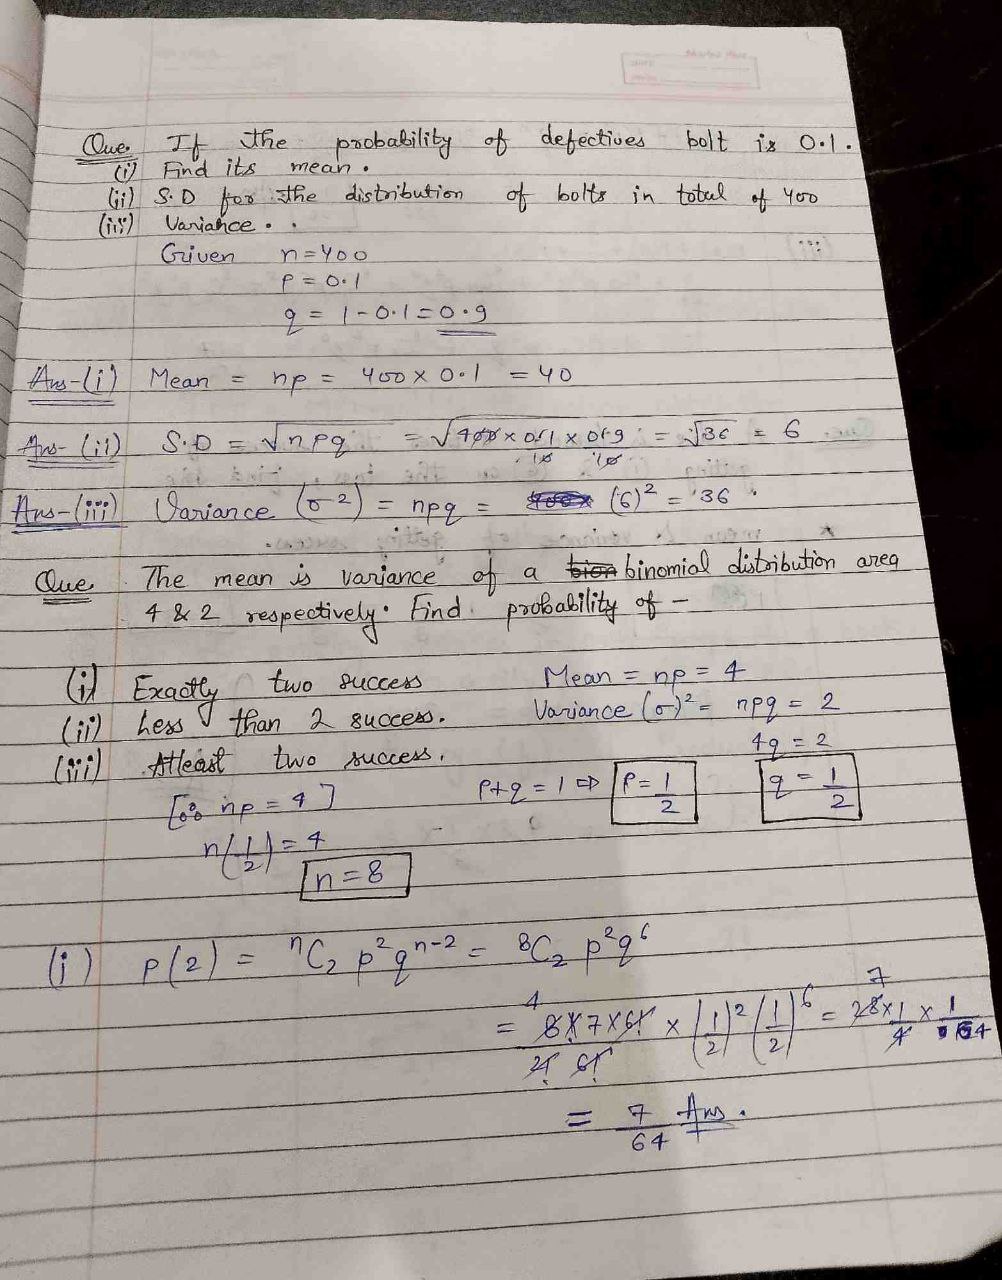 Que. If the probability of defectives bolt is 0.1.
(i) Find its mean.
(ii) S.D for the distribution of bolts in total of 400
(iii) Variance.
Given n=400
P = 0.1
q = 1-0.1=0.9
Ans-(i) Mean = np = 400 x 0.1 = 40
Ans-(ii) S.D = √npq = √400 x 0.1 x 0.9 = √36 = 6
10 10
Ans-(iii) Variance (σ²) = npq = (6)² = 36
Que. The mean is variance of a bion binomial distribution area
4 & 2 respectively. Find probability of -
(i) Exactly two success Mean = np = 4
(ii) Less than 2 success. Variance (σ)² = npq = 2
(iii) Atleast two success. 4q = 2
[∵ np = 4] P+q = 1 ⇒ P = 1/2 q = 1/2
n(1/2) = 4
n = 8
(i) P(2) = ⁿC₂ p² qⁿ⁻² = ⁸C₂ p² q⁶
= 8x7x6!/2! 6! x (1/2)² (1/2)⁶ = 28x1/4 x 1/64
4 7
= 7/64 Ans.